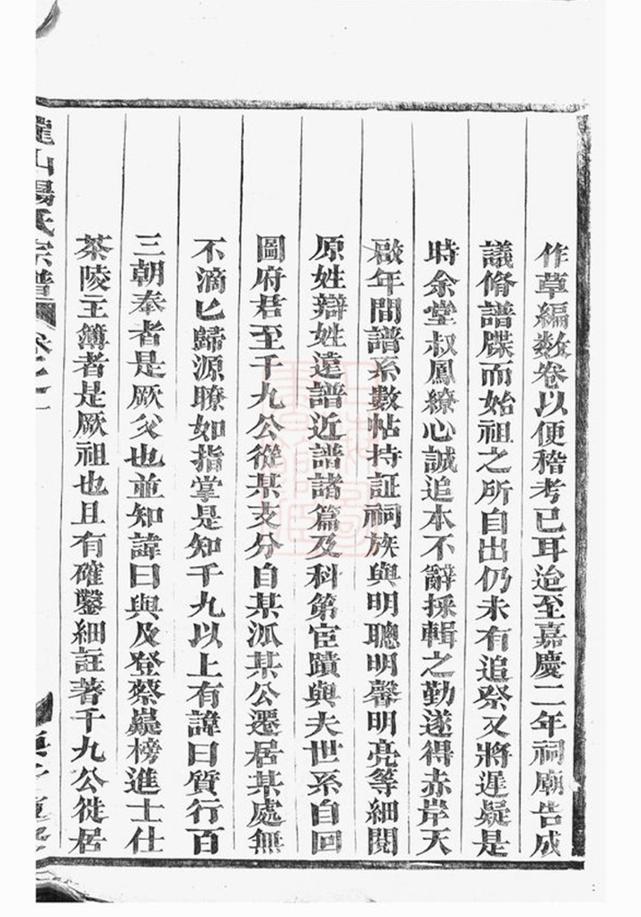 作草編数卷以便稽考已耳迨至嘉慶二年祠廟告成
議脩譜牒而始祖之所自出仍未有追祭又將遲疑是
時余堂叔鳳繚心誠追本不辭採輯之勤遂得赤岸天
啟年間譜系數帖持証祠族與明聰明馨明亮等細閱
原姓辯姓遠譜近譜諸篇及科第宦蹟與夫世系自回
圖府君至千九公從某支分自某派某公遷居某處無
不滴匕歸源瞭如指掌是知千九以上有諱曰質行百
三朝奉者是厥父也並知諱曰與及登蔡薿榜進士仕
茶陵主簿者是厥祖也且有確鑿細註著千九公徙居
山楊氏宗譜 卷之一